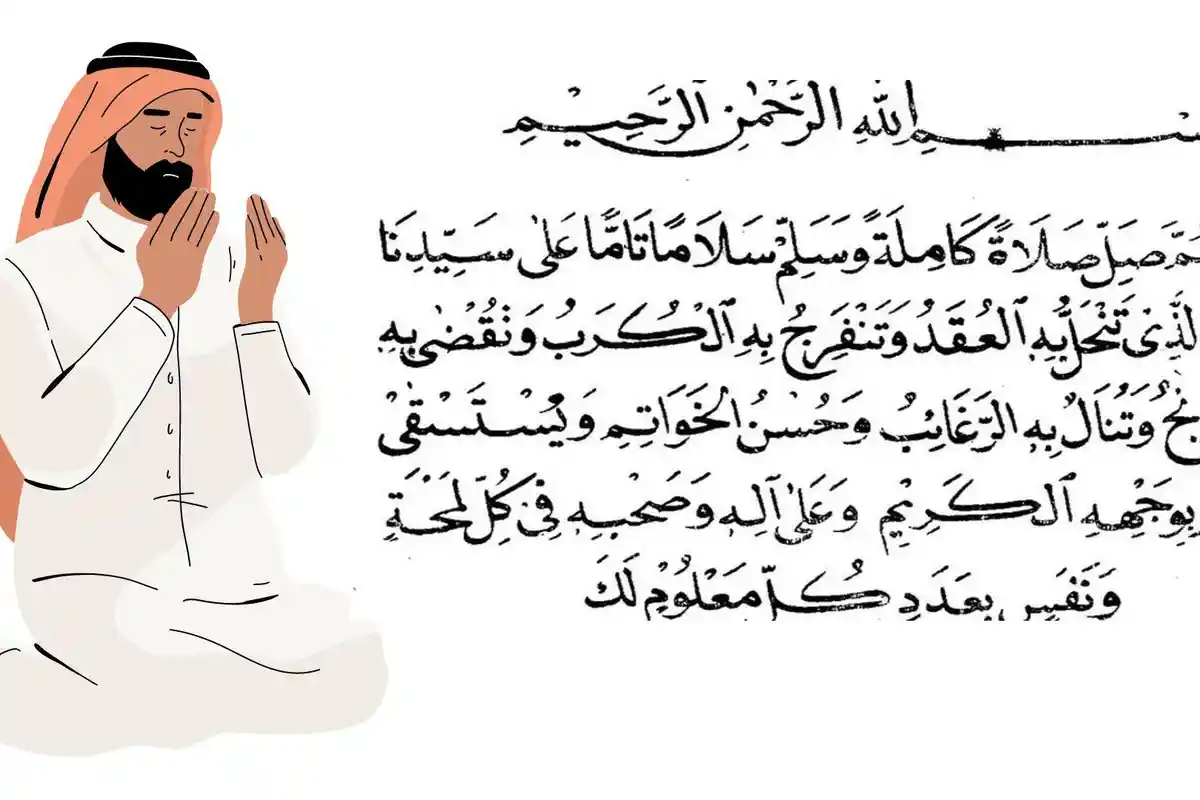 اللهِ الرَّحْمٰنِ الرَّحِيمِ
صَلِّ صَلَاةً كَامِلَةً وَسَلِّمْ سَلَامًا تَامًّا عَلٰى سَيِّدِنَا
لَّذِىْ تَنْحَلُّ بِهِ ٱلْعُقَدُ وَتَنْفَرِجُ بِهِ ٱلْكُرَبُ وَتُقْضٰى بِهِ
وَتُنَالُ بِهِ الرَّغَائِبُ وَحُسْنُ الْخَوَاتِمِ وَيُسْتَسْقٰى
بِوَجْهِهِ ٱلْكَرِيْمِ وَعَلٰى آلِهِ وَصَحْبِهِ فِىْ كُلِّ لَمْحَةٍ
وَنَفَسٍ بِعَدَدِ كُلِّ مَعْلُوْمٍ لَكَ